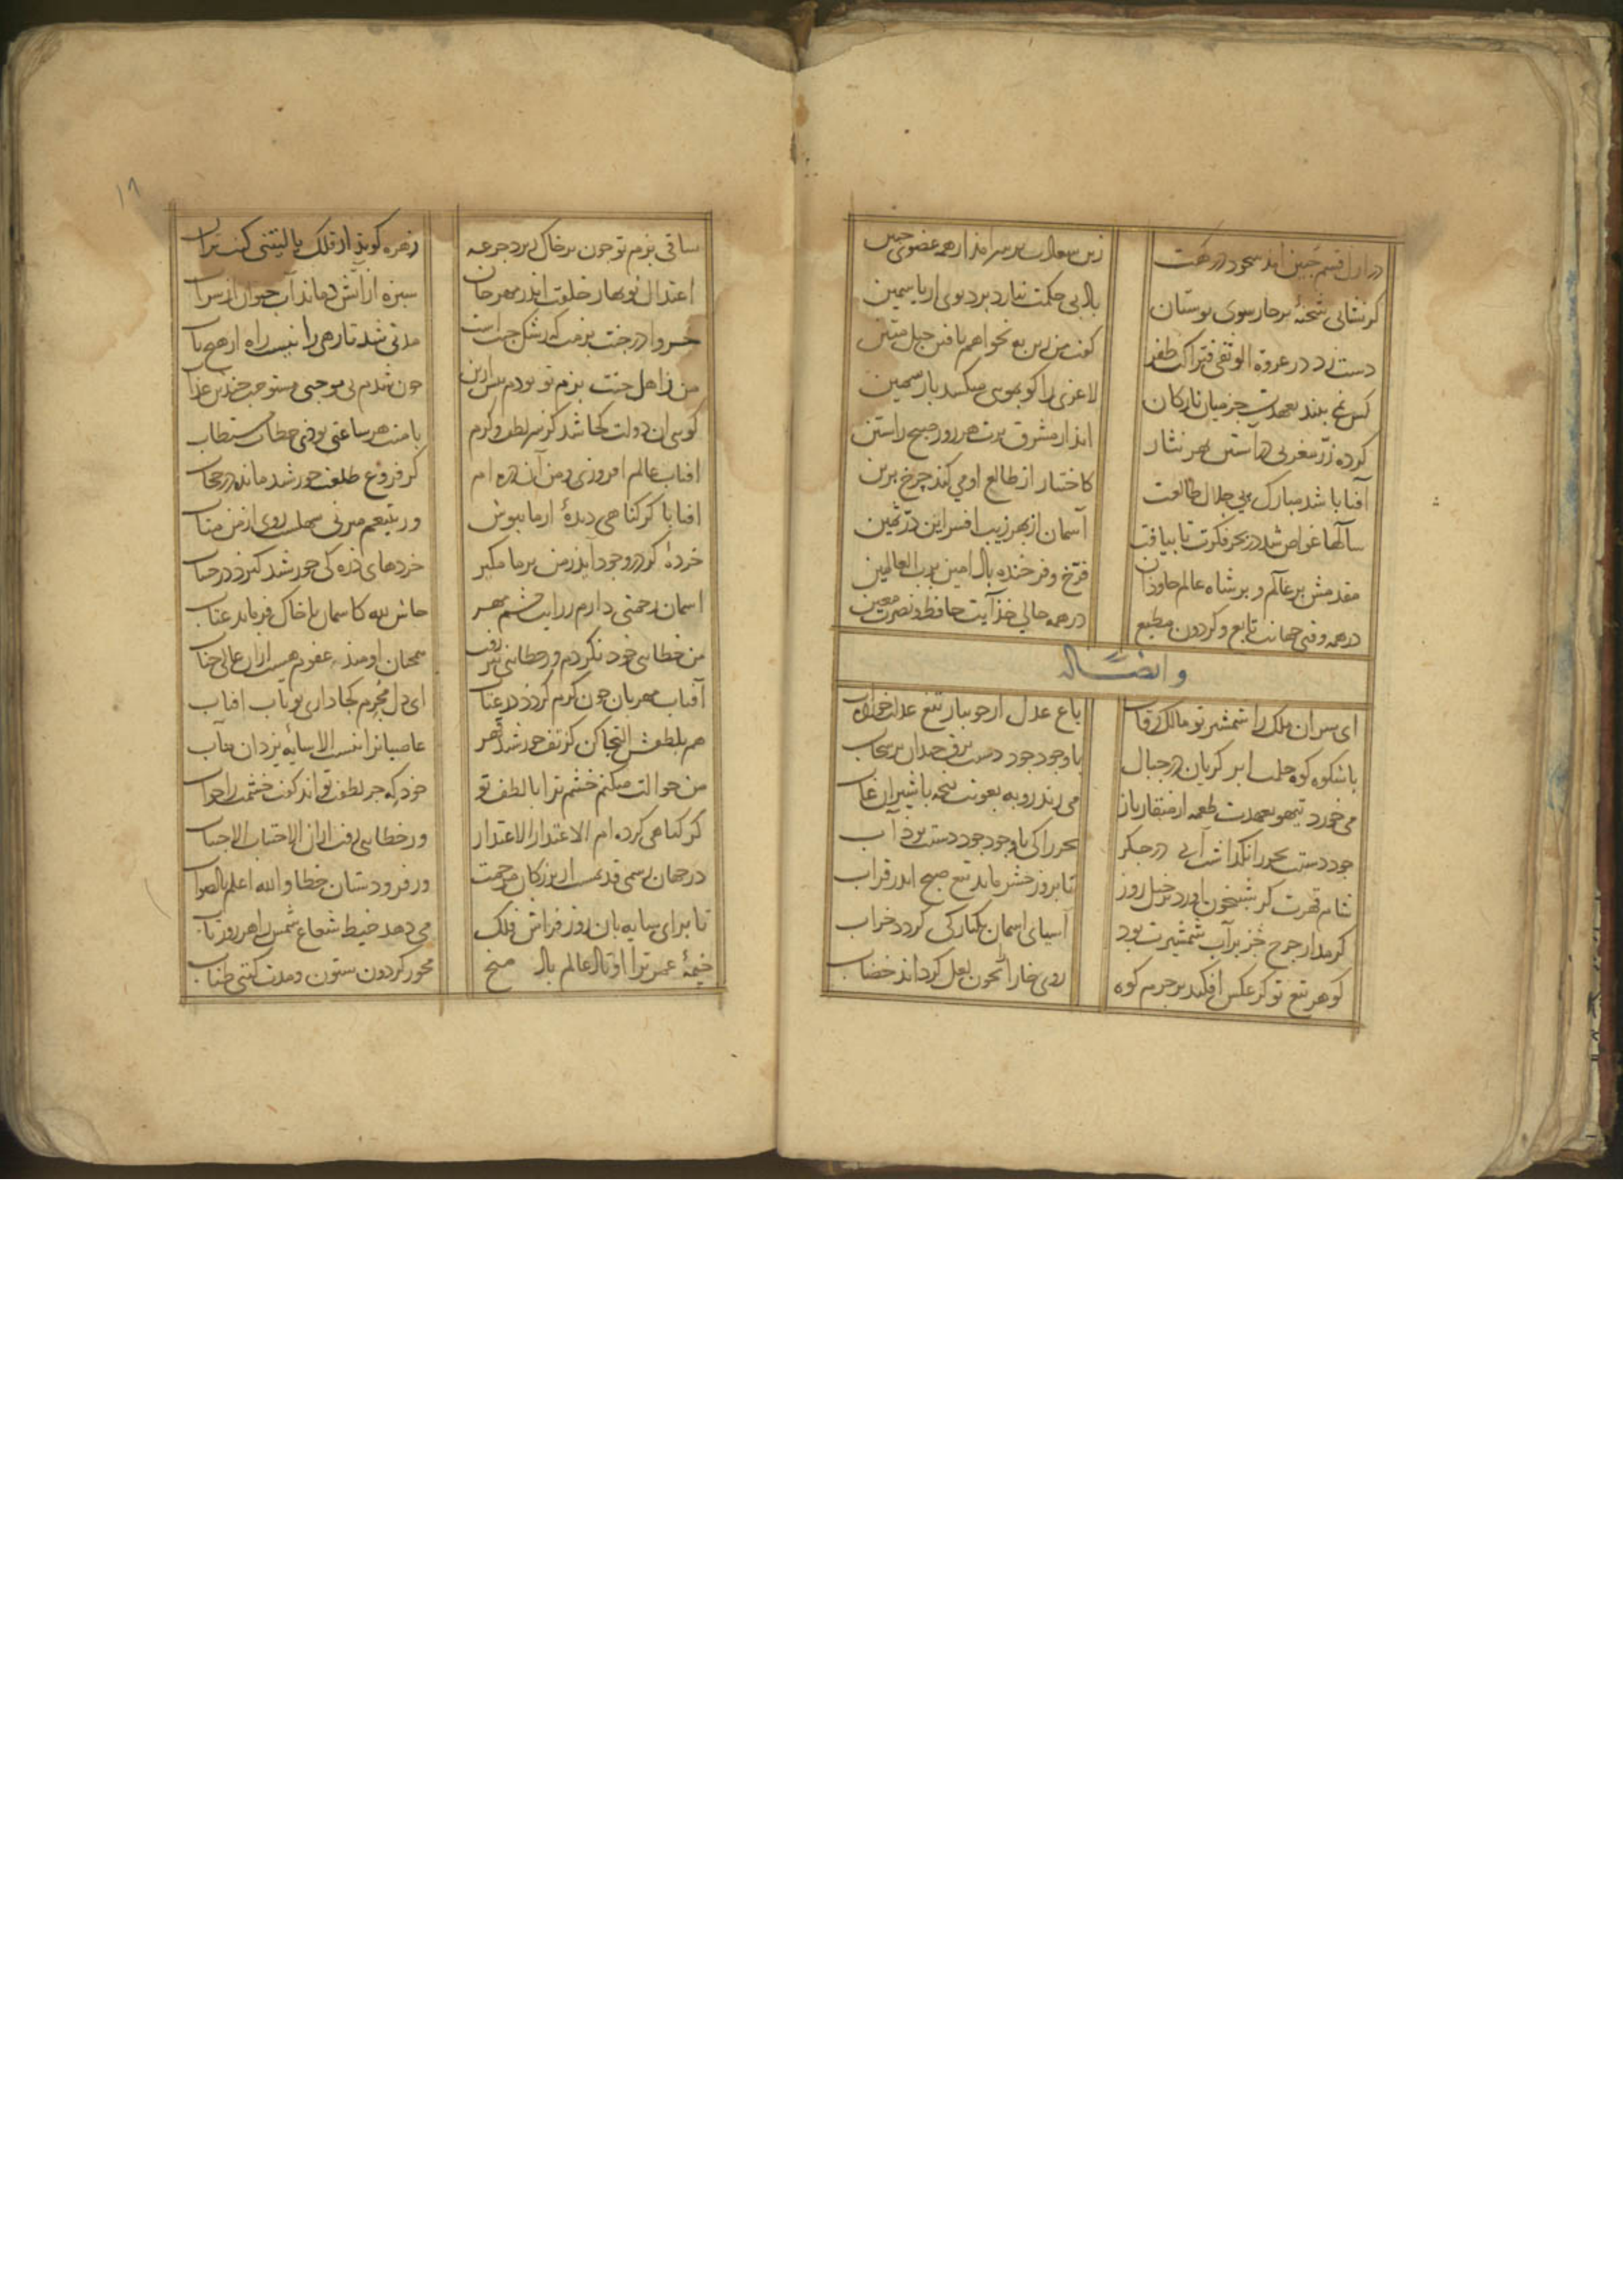 در ازل قسم جبین آمد سجود درگهت زین سعادت بر سر آمد از همه عضوی جبین
گر نشانی شحنهٔ بر چار سوی بوستان باد بی حکمت نیارد برد بوی از یاسمین
دست زد در عروة الوثقی فتراکت ظفر گفت من زین به نخواهم یافتن حبل متین
کس نمی بیند بعهدت جز میان نازکان لاغری را کو بمویی میکشد بار سمین
کرده زرّ مغربی در آستین بهر نثار اید از مشرق برت هر روز صبح راستین
آفتابا شد مبارک پی جلال طالعت کاختیار از طالع او می کند چرخ برین
سالها غواص شد در بحر فکرت تا بیافت آسمان از بهر زیب افسر این درّ ثمین
مقدمش بر عالم و بر شاه عالم جاودان فرّخ و فرخنده باد امین یرب العالمین
در همه وقتی جهانت تابع و گردون مطیع در همه حالی خذایت حافظ و نصرت معین
و ایضاً له
ای سران ملک را شمشیر تو مالک رقاب باغ عدل از جویبار تیغ عدلت خورده آب
با شکوه کوه حلمت ابر گریان در جبال با وجود جود دستت برق خندان بر سحاب
می خورد تیهو بعهدت طعمه از منقار باز می زند روبه بعونت پنجه با شیران غاب
جود دستت بحر را نگذاشت آبی در جگر بحر را کی با وجود جود دستت بوذ آب
شام قهرت گر شبیخون اورد بر خیل روز تا بروز حشر ماند تیغ صبح اندر قراب
گر مدار چرخ جز بر آب شمشیرت بود آسیای اسمان یکبارگی گردد خراب
گوهر تیغ تو گر عکس افکند بر جرم کوه روی خارا همچون لعل گرداند خضاب
ساقی بزم تو چون بر خاک ریزد جرعه زهره گویذ از فلک یا لیتنی کنت تراب
اعتدال نوبهار خلقت اندر مهرجان سبزه از آتش دماند آب حیوان از سراب
خسروا در جنت بزمت که رشک جنت است مدتی شد تا رهی را نیست راه از هیچ باب
من ز اهل جنت بزم تو بودم پس ازین چون شدم بی موجبی مستوجب چندین عذاب
گویی ان دولت کجا شد کز سر لطف و کرم با منت هر ساعتی بوذی خطاب مستطاب
افتاب عالم افروزی و من آن ذره ام کز فروغ طلعت خورشید مانده در حجاب
افتابا گر گناهی دیدهٔ از ما بپوش ور بتیغم میزنی سهلست روی از من متاب
خردهٔ گر در وجود آیذ ز من بر ما مگیر خردهای ذره کی خورشید گیرد در حساب
اسمان رحمتی دارم ز رایت چشم مهر حاش لله کاسمان با خاک فرماید عتاب
من خطایی خود نکردم ور خطایی نیز رفت همچنان اومیذ عفوم هست ازان عالی جناب
آفتاب مهربان چون گرم گردد در عتاب ای دل مجرم کجا داری تو تاب افتاب
هم بلطفش التجا کن کز تف خورشید قهر عاصیانرا نیست الا سایهٔ یزدان مآب
من حوالت میکنم خشم ترا با لطف تو خود که جز لطفت تواند گفت خشمت را جواب
گر گناهی کرده ام الاعتذار الاعتذار ور خطایی رفت ازان الاجتناب الاجتناب
در جهان رسمی قدیمست از بزرگان مرحمت ور فرودستان خطا و الله اعلم بالصواب
تا برای سایه بان روز فراش فلک می دهد خیط شعاع شمس را هر روز تاب
خیمهٔ عمر ترا اوتاد عالم باد میخ محور گردون ستون و مدت گیتی طناب